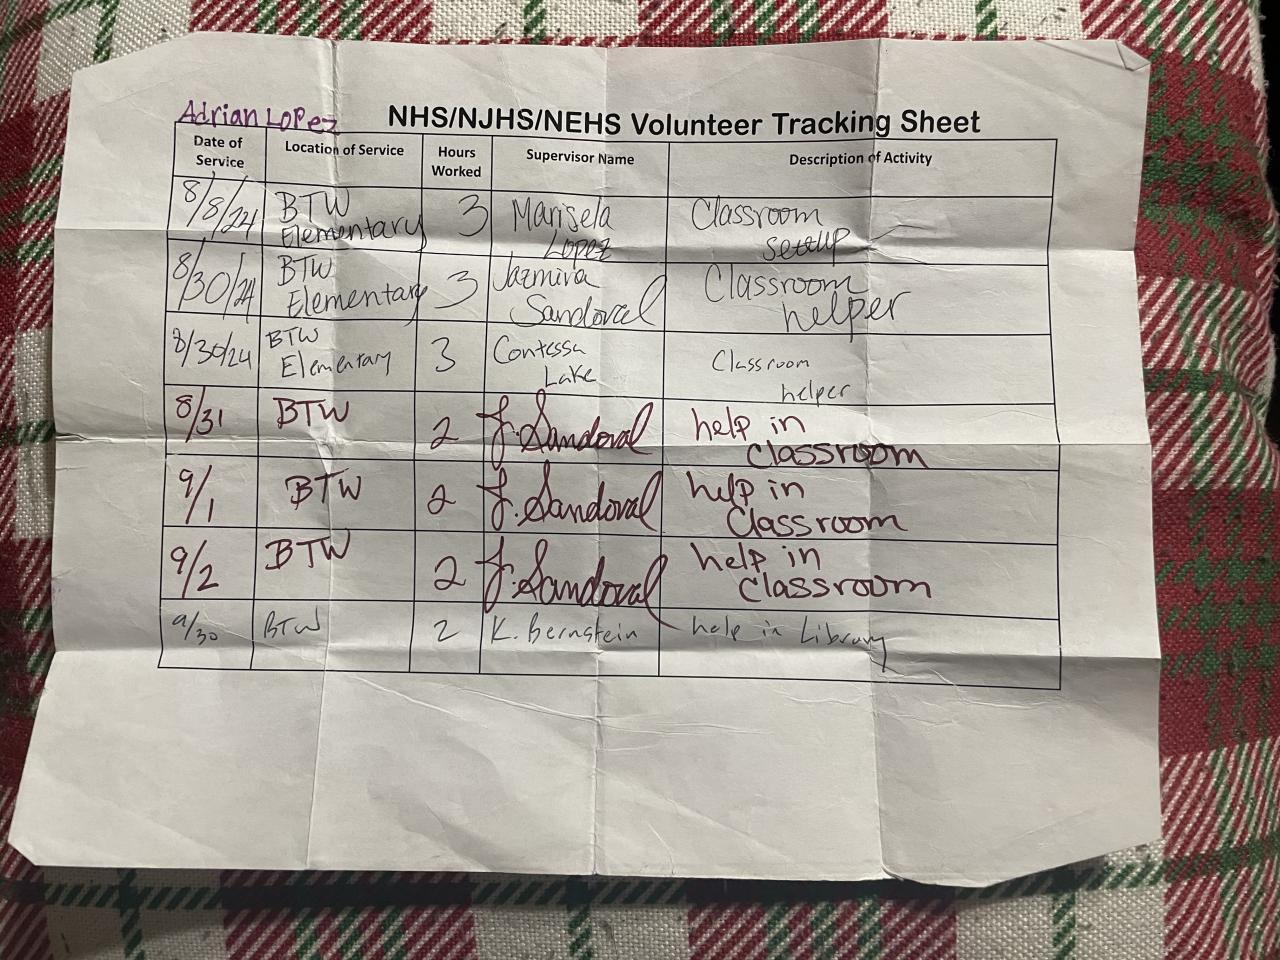 Adrian Lopez
NHS/NJHS/NEHS Volunteer Tracking Sheet
Date of Service
Location of Service
Hours Worked
Supervisor Name
Description of Activity
8/8/24 BTW Elementary 3 Marisela Lopez Classroom setup
8/30/24 BTW Elementary 3 Jazmira Sandoval Classroom helper
8/30/24 BTW Elementary 3 Contessa Lake Classroom helper
8/31 BTW 2 J. Sandoval help in Classroom
9/1 BTW 2 J. Sandoval help in Classroom
9/2 BTW 2 J. Sandoval help in Classroom
9/30 BTW 2 K. Bernstein help in Library